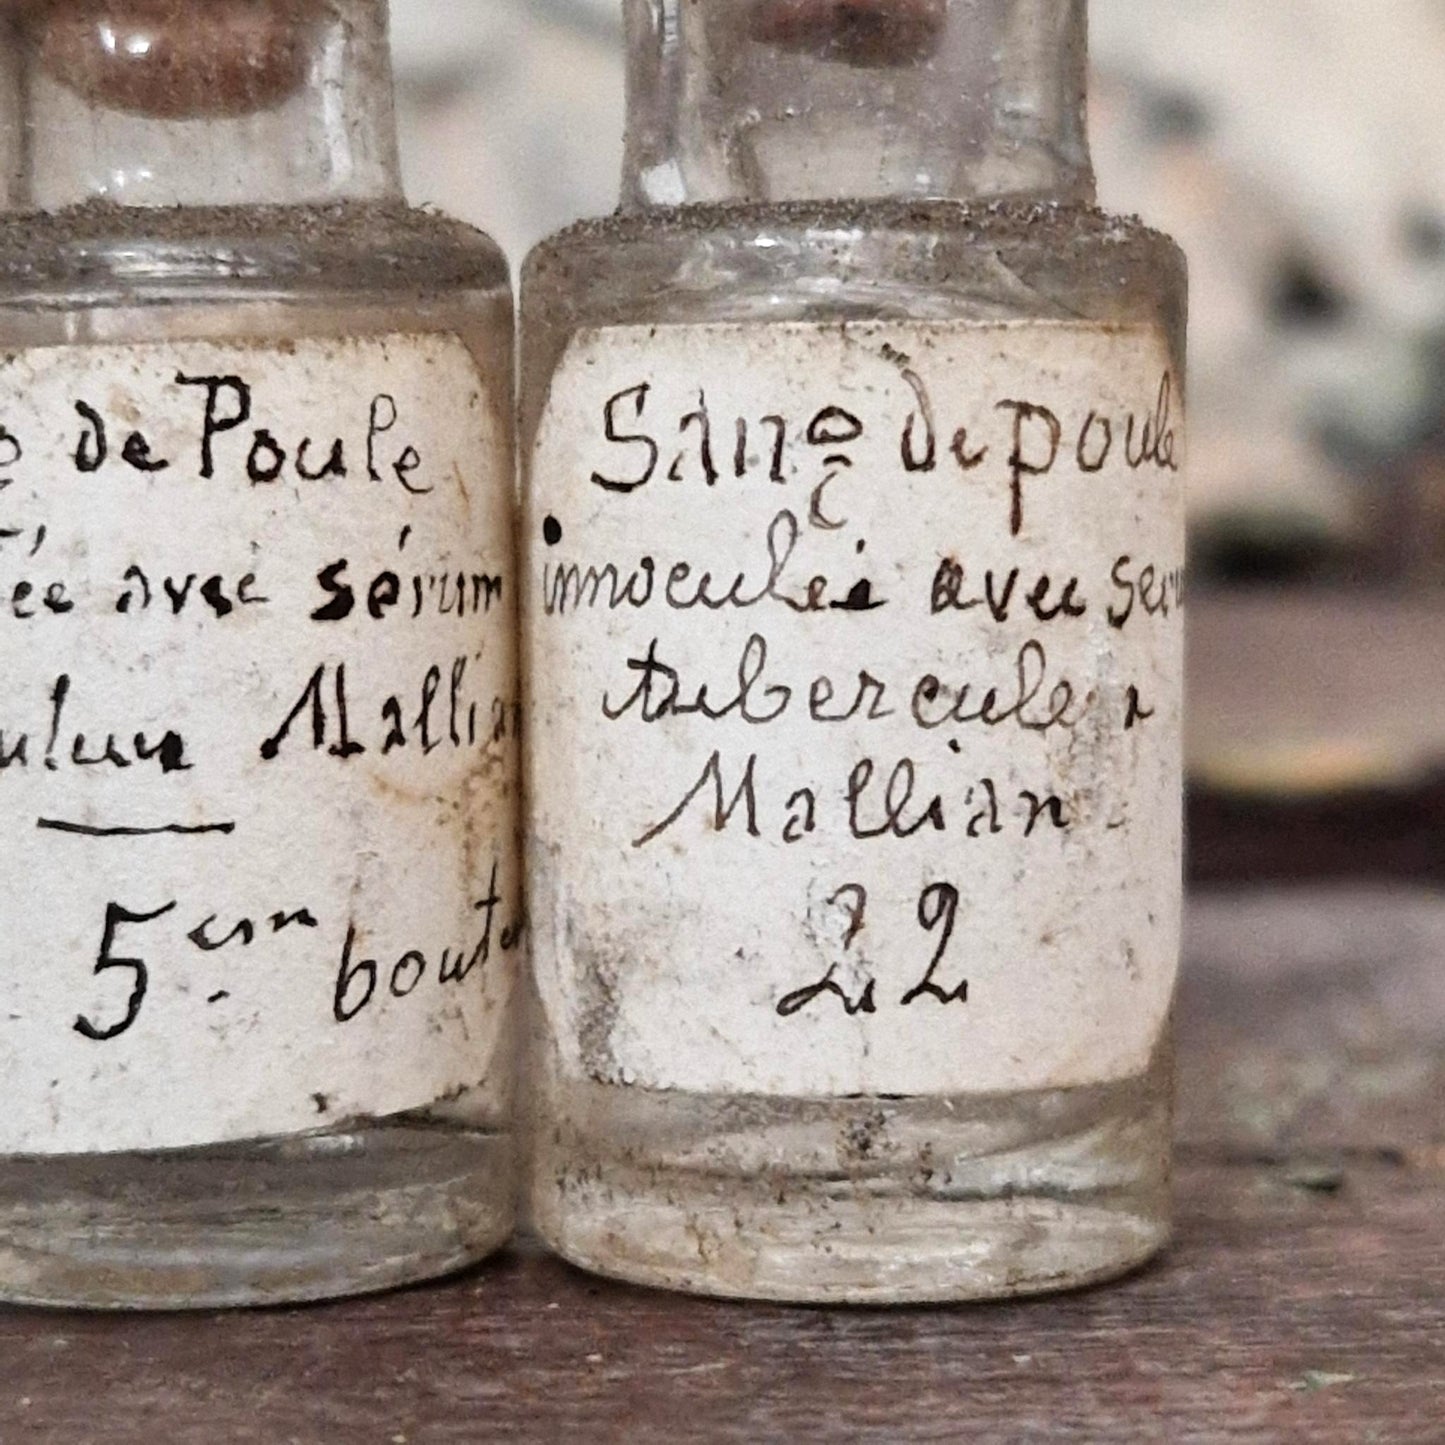 de Poule
ée avec sérum
Mallian
5em bout
Sang de poule
innoculée avec seru
tubercule
Mallian
22